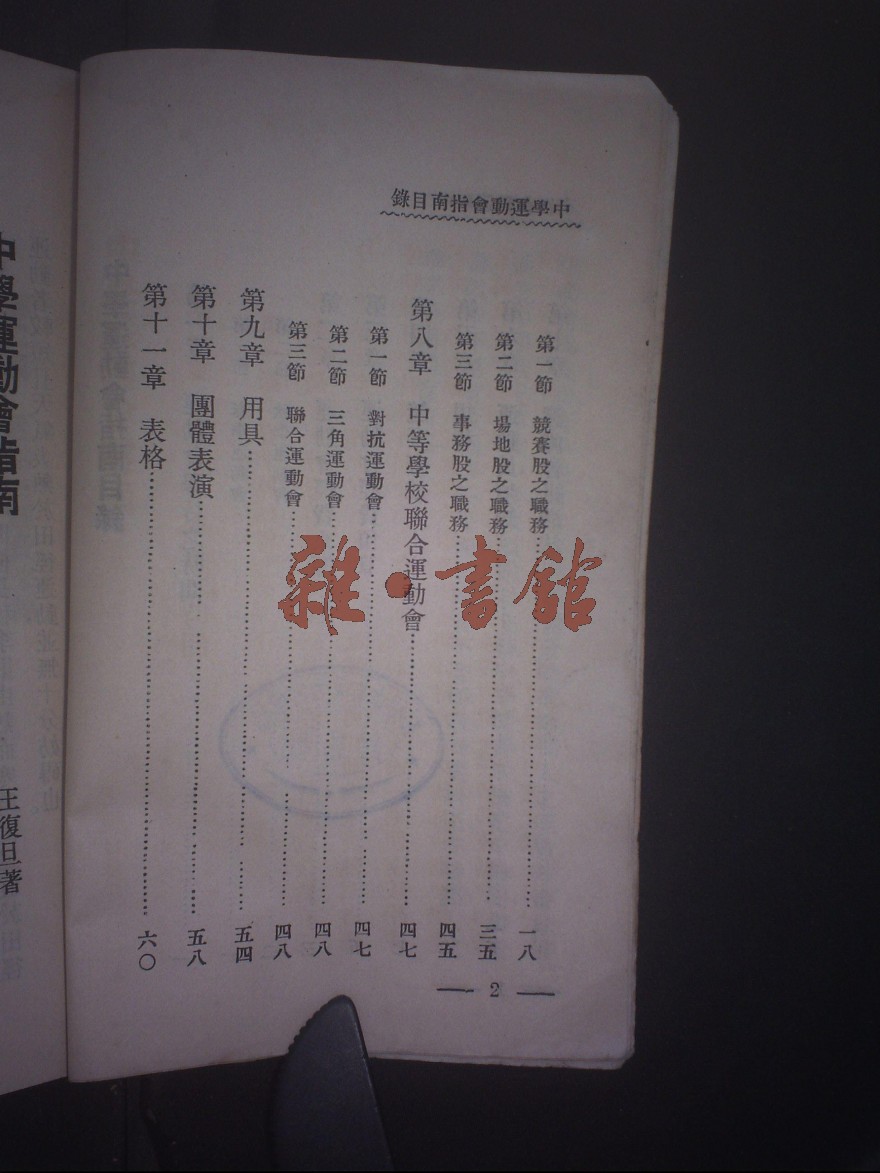 中學運動會指南目錄
第一節　競賽股之職務……一八
第二節　場地股之職務……三五
第三節　事務股之職務……四五
第八章　中等學校聯合運動會……四七
第一節　對抗運動會……四七
第二節　三角運動會……四八
第三節　聯合運動會……四八
第九章　用具……五四
第十章　團體表演……五八
第十一章　表格……六〇
2
雜·書館
中學運動會指南
王復旦著